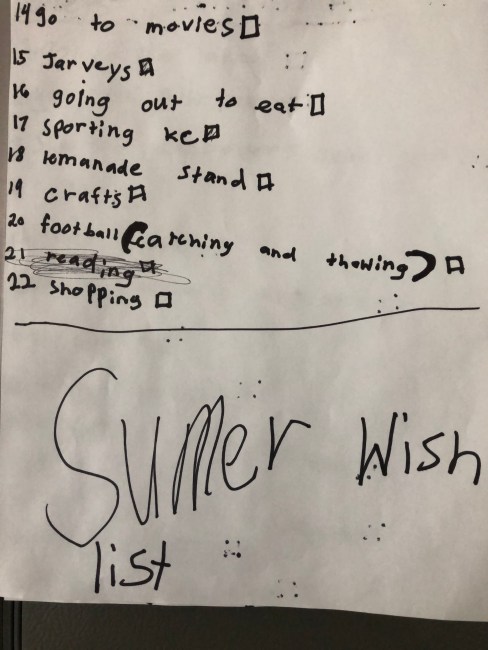 14 go to movies
15 Jarveys
16 going out to eat
17 sporting kc
18 lomanade stand
19 crafts
20 football (catching and thowing)
21 reading
22 shopping
Sumer Wish
list